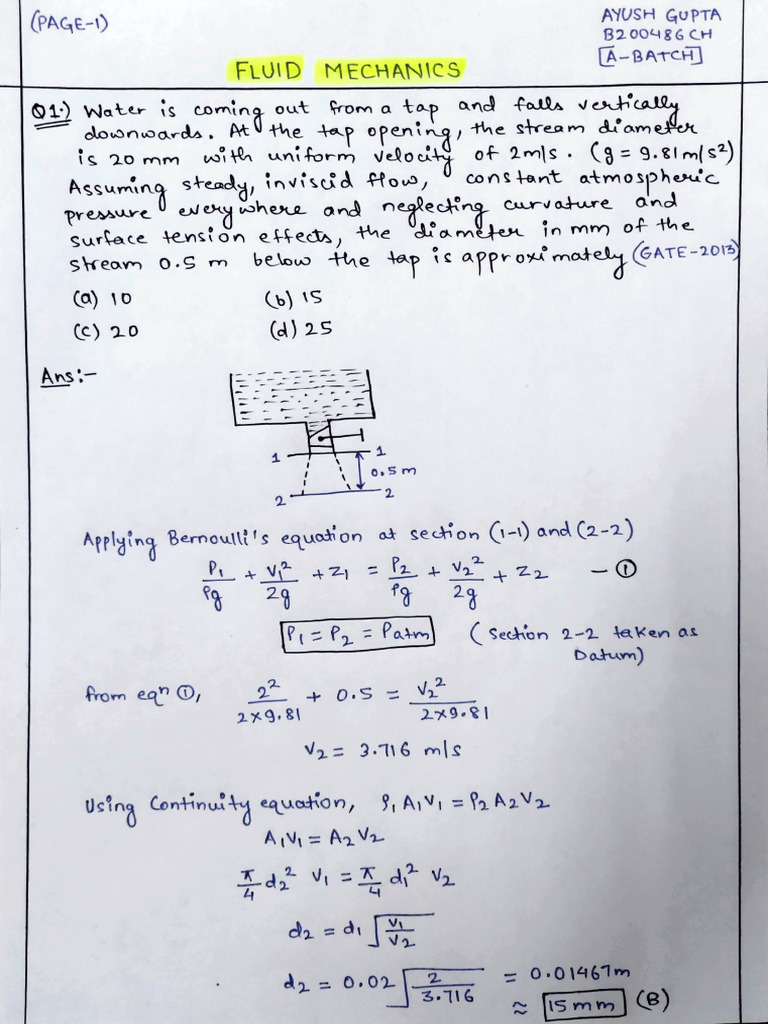 (PAGE-1)
AYUSH GUPTA
B200486CH
[A-BATCH]
FLUID MECHANICS
Q1.) Water is coming out from a tap and falls vertically
downwards. At the tap opening, the stream diameter
is 20 mm with uniform velocity of 2m/s. (g = 9.81m/s²)
Assuming steady, inviscid flow, constant atmospheric
pressure everywhere and neglecting curvature and
surface tension effects, the diameter in mm of the
stream 0.5 m below the tap is approximately (GATE-2013)
(a) 10 (b) 15
(c) 20 (d) 25
Ans:-
1 1
0.5 m
2 2
Applying Bernoulli's equation at section (1-1) and (2-2)
P₁/ρg + V₁²/2g + Z₁ = P₂/ρg + V₂²/2g + Z₂ — ①
P₁ = P₂ = Patm (Section 2-2 taken as
Datum)
from eqⁿ ①, 2²/2×9.81 + 0.5 = V₂²/2×9.81
V₂ = 3.716 m/s
Using Continuity equation, ρ₁A₁V₁ = ρ₂A₂V₂
A₁V₁ = A₂V₂
π/4 d₂² V₁ = π/4 d₁² V₂
d₂ = d₁ √(V₁/V₂)
d₂ = 0.02 √(2/3.716) = 0.01467m
≈ 15mm (B)